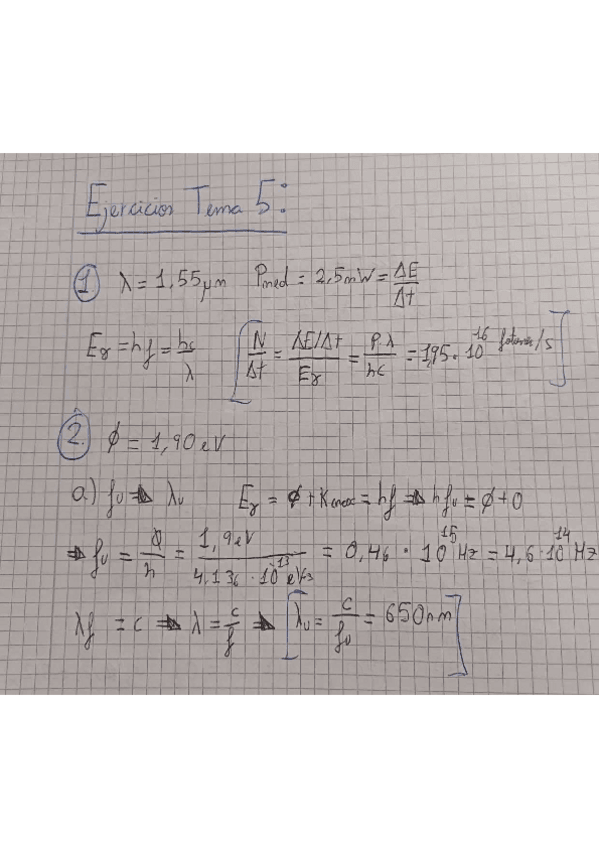 Ejercicios Tema 5:
1 λ = 1,55μm Pmed = 2,5mW = ΔE/Δt
Eγ = hf = hc/λ [N/Δt = (ΔE/Δt)/Eγ = P·λ/hc = 1,95·10^16 fotones/s]
2. ϕ = 1,90 eV
a.) f₀ ⇒ λ₀ Eγ = ϕ + Kmax = hf ⇒ hf₀ = ϕ + 0
⇒ f₀ = ϕ/h = 1,9eV/(4,136·10^-13 eV/s) = 0,46·10^15 Hz = 4,6·10^14 Hz
λf = c ⇒ λ = c/f ⇒ [λ₀ = c/f₀ = 650nm]